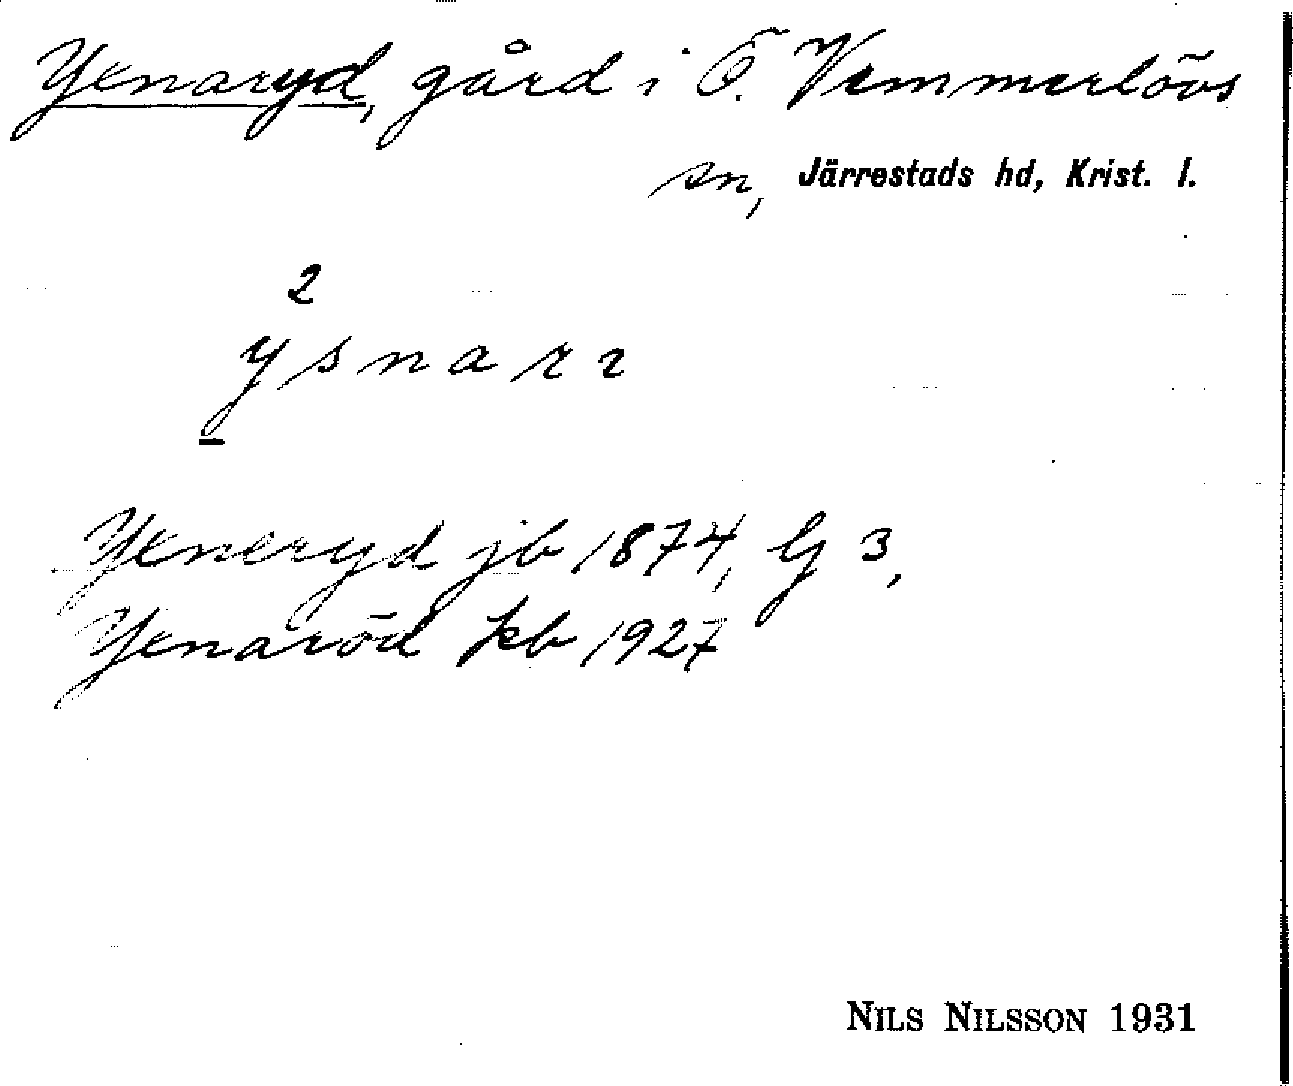 Yxnaryd, gård i Ö. Vemmerlövs
sn, Järrestads hd, Krist. l.
2
ysnarr
Yxneryd jb 1874, G 3,
Yxnaröd kb 1927
NILS NILSSON 1931